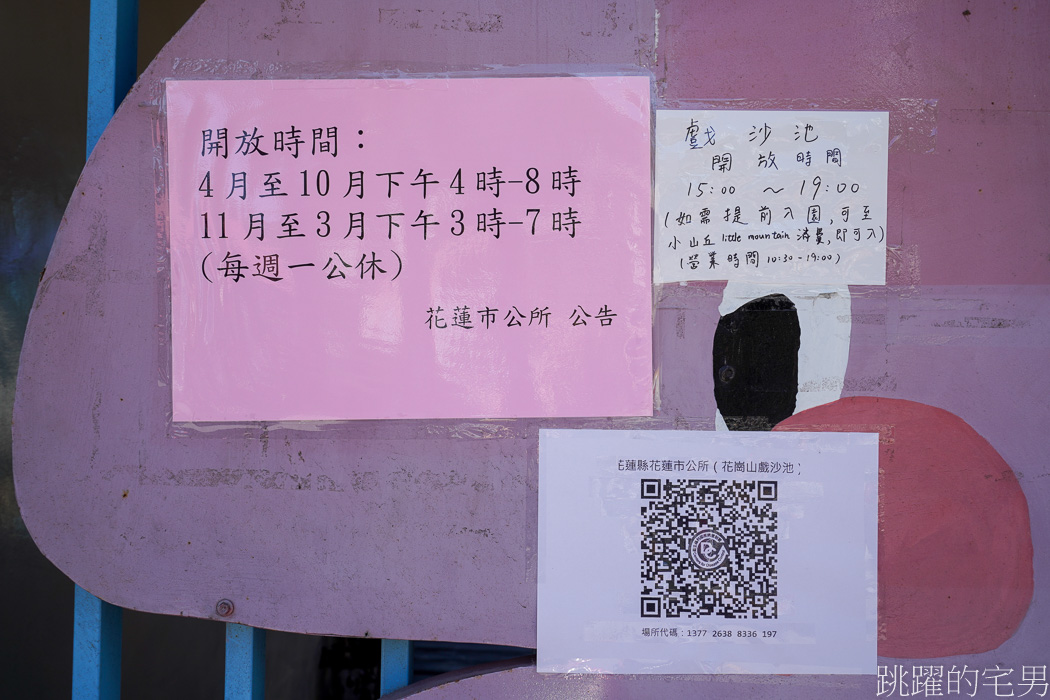 開放時間：
4月至10月下午4時-8時
11月至3月下午3時-7時
(每週一公休)
花蓮市公所 公告
戲 沙 池
開 放 時間
15:00 ～ 19:00
(如需提前入園,可至
小山丘 little mountain 消費,即可入)
(營業時間 10:30-19:00)
花蓮縣花蓮市公所（花崗山戲沙池）
場所代碼：1377 2638 8336 197
跳躍的宅男